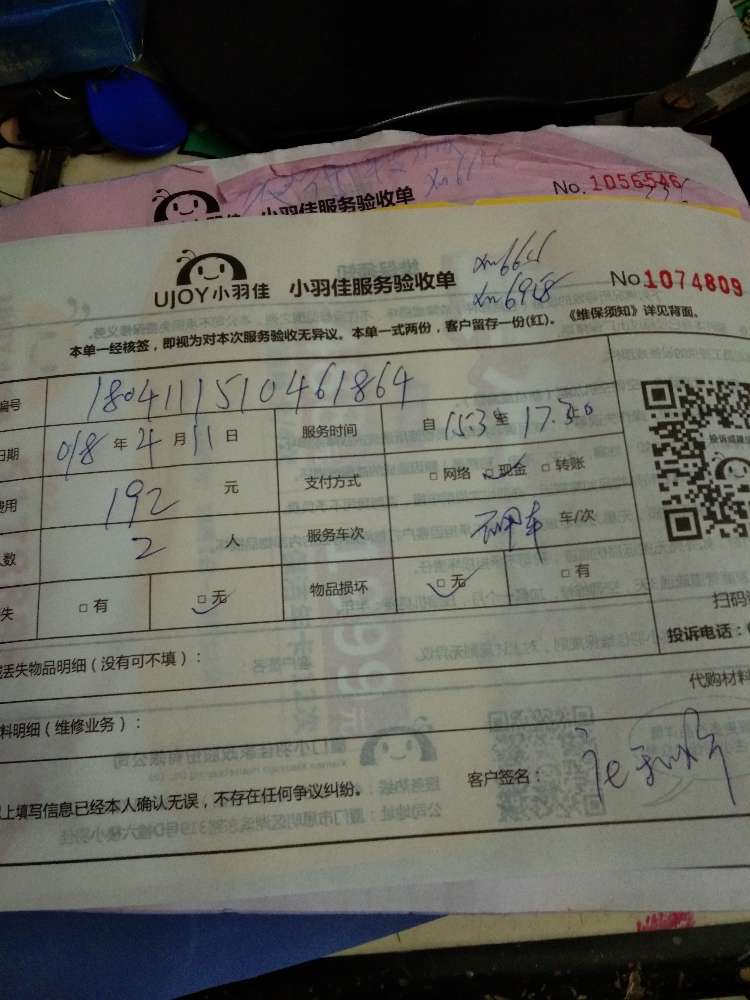 No. 1056546
小羽佳服务验收单
xm6928
UJOY小羽佳 小羽佳服务验收单 No 1074809
本单一经核签，即视为对本次服务验收无异议。本单一式两份，客户留存一份(红)。《维保须知》详见背面。
编号 180411151046 1864
日期 018 年 4 月 11 日 服务时间 自 15:3 至 17:30
费用 192 元 支付方式 □ 网络 □ 现金 □ 转账
人数 2 人 服务车次 车/次
失 □ 有 □ 无 物品损坏 □ 无 □ 有
扫码
投诉电话：
丢失物品明细（没有可不填）：
代购材料
料明细（维修业务）：
上填写信息已经本人确认无误，不存在任何争议纠纷。 客户签名：